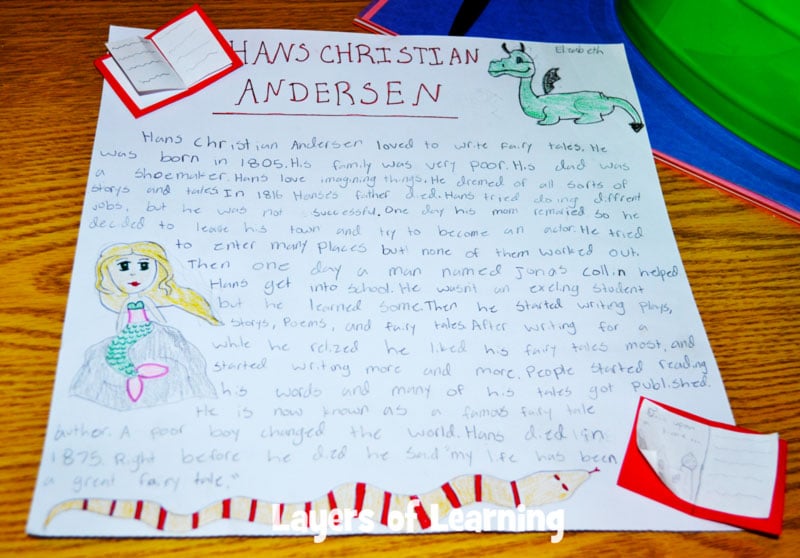 HANS CHRISTIAN
Elizabeth
ANDERSEN
Hans christian Andersen loved to write fairy tales. He
was born in 1805. His family was very poor. His dad was
a shoemaker. Hans love imagining things. He dremed of all sorts of
storys and tales. In 1816 Hanse's father died. Hans tried doing diffrent
jobs, but he was not successful. One day his mom remaried so he
decided to leave his town and try to become an actor. He tried
to enter many places but none of them worked out.
Then one day a man named Jonas collin helped
Hans get into school. He wasn't an exeling student
but he learned some. Then he started writing plays,
storys, Poems, and fairy tales. After writing for a
while he relized he liked his fairy tales most, and
started writing more and more. People started reading
his words and many of his tales got published.
He is now known as a famous fairy tale
author. A poor boy changed the world. Hans died in
1875. Right before he died he said "my life has been
a great fairy tale."
Once upon
a time...
Layers of Learning